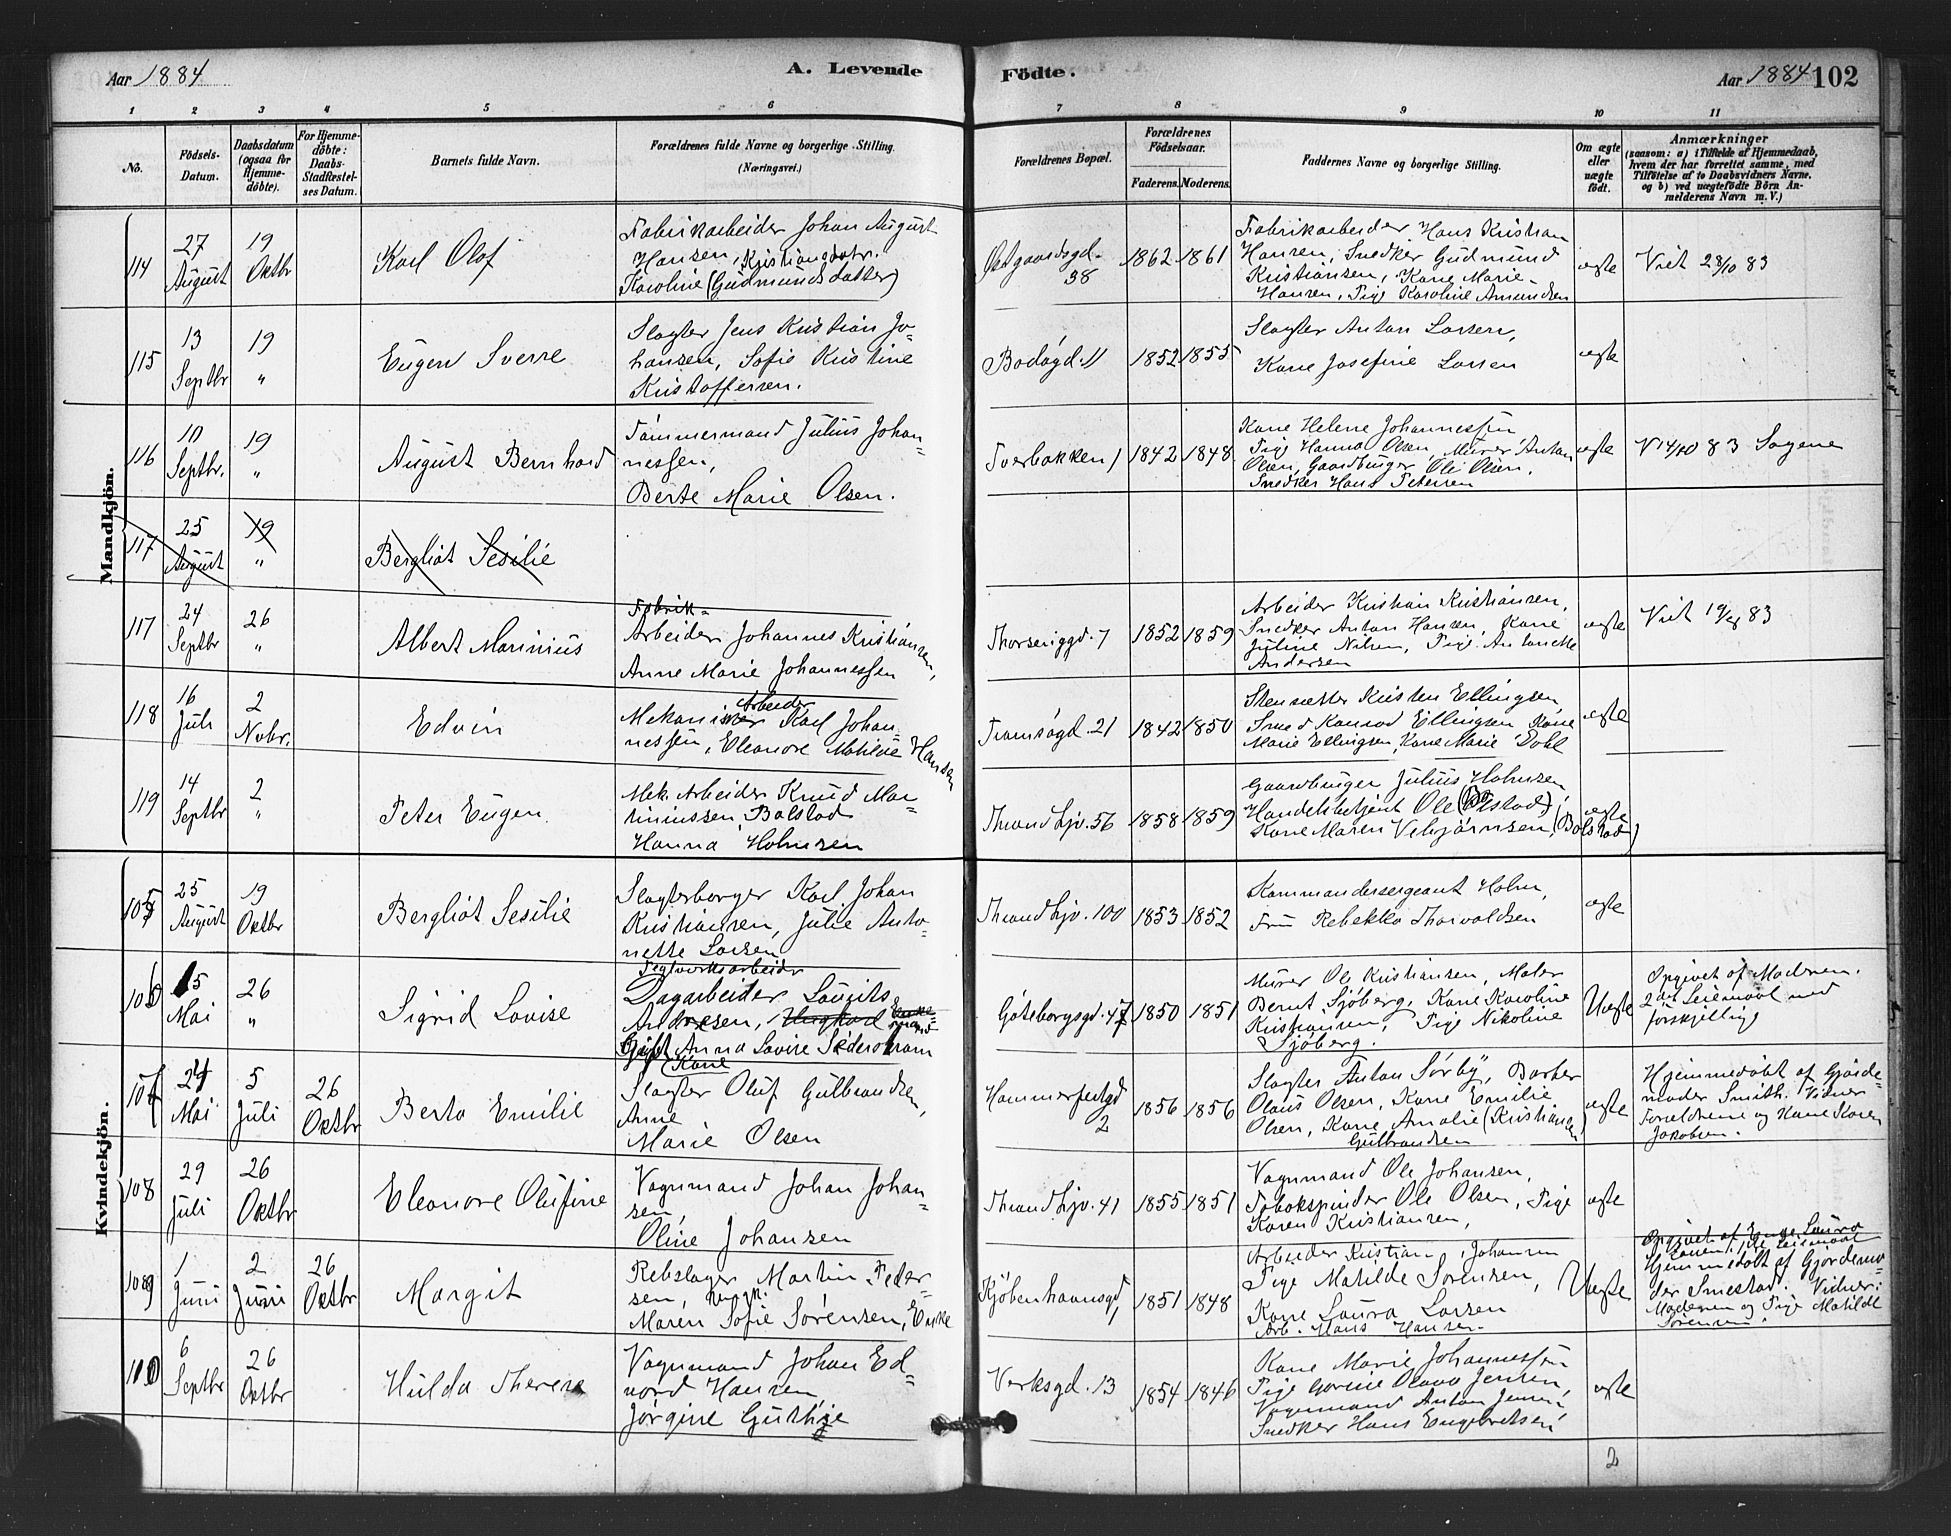 Aar 1884
A. Levende
Födte.
Aar 1884 102
1 2 3 4 5 6 7 8 9 10 11
No.
Födsels-
Datum.
Daabsdatum
(ogsaa for
Hjemme-
döbte).
For Hjemme-
döbte:
Daabs-
Stadfæstel-
ses Datum.
Barnets fulde Navn.
Forældrenes fulde Navne og borgerlige Stilling.
(Næringsvei.)
Forældrenes Bopæl.
Forældrenes
Födselsaar.
Faderens. Moderens.
Faddernes Navne og borgerlige Stilling.
Om ægte
eller
uægte
födt.
Anmærkninger
(saasom: a) i Tilfælde af Hjemmedaab,
hvem der har forrettet samme, med
Tilföielse af to Daabsvidners Navne,
og b) ved uægtefödte Börn An-
melderens Navn m. V.)
Mandkjön.
114
27
August
19
Oktbr
Karl Olof
Fabrikarbeider Johan August
Hansen, Kristiansdatr.
Karoline (Gudmundsdatter)
Østgaardsgd.
38
1862 1861
Fabrikarbeider Hans Kristian
Hansen, Snedker Gudmund
Kristiansen, Kone Marie
Hansen, Pige Karoline Amundsen
ægte
Viet 28/10 83
115
13
Septbr
19
"
Eugen Sverre
Slagter Jens Kristian Jo-
hansen, Sofie Kristine
Kristoffersen.
Bodøgd. 11
1852 1855
Slagter Anton Larsen,
Kone Josefine Larsen
ægte
116
10
Septbr.
19
"
August Bernhard
Tømmermand Julius Johan-
nessen,
Berte Marie Olsen.
Tverbakken 1
1842 1848
Kone Helene Johannessen
Pige Hanna Olsen, Murer Anton
Olsen, Gaardbruger Ole Olsen,
Snedker Hans Petersen
ægte
V 14/10 83 Sagene
117
25
August
19
"
Bergliot Sesilie
117
24
Septbr
26
"
Albert Marinius
Fabrik-
Arbeider Johannes Kristiansen,
Anne Marie Johannessen
Thorseniggd. 7
1852 1859
Arbeider Kristian Kristiansen,
Snedker Anton Hansen, Kone
Juline Nilsen, Pige Antonette
Andersen
ægte
118
16
Juli
2
Novbr.
Edvin
Arbeider
Mekaniker Karl Johan-
nessen, Eleonore Matilde Hansen
Tromsøgd. 21
1842 1850
Stensætter Kristen Ellingsen
Smed Konrad Ellingsen Kone
Marie Ellingsen, Kone Marie Dahl
ægte
119
14
Septbr
2
"
Peter Eugen
Mek. Arbeider Knud Mar-
tinussen Bolstad
Hanna Holmsen
Throndhjv. 56
1858 1859
Gaardbruger Julius Holmsen,
Handelsbetjent Ole (Bolstad)
Kone Maren Vebjørnsen, (Bolstad)
ægte
Kvindekjön.
105
25
August
19
Oktbr
Bergliot Sesilie
Slagterborger Karl Johan
Kristiansen, Julie Anto-
nette Larsen
Throndhjv. 100
1853 1852
Kommandersergeant Holm,
Fru Rebekka Thorvaldsen
ægte
106
15
Mai
26
"
Sigrid Lovise
Teglverksarbeider
Dagarbeider Laurits
Andresen, Ungkarl Enke-
mand
Gift Anna Lovise Sederstrøm
Gøteborgsgd. 47
1850 1851
Murer Ole Kristiansen, Maler
Bernt Sjøberg, Kone Karoline
Kristiansen, Pige Nikoline
Sjøberg.
Uægte
Opgivet af Moderen.
2det Leiermaal med
forskjellige
107
24
Mai
5
Juli
26
Oktbr
Berta Emilie
(Kone
Slagter Oluf Gulbrandsen,
Anne
Marie Olsen
Hammerfestgd
2
1856 1856
Slagter Anton Sørby, Barber
Olaus Olsen, Kone Emilie
Olsen, Kone Amalie (Kristiansen)
Gulbrandsen
ægte
Hjemmedøbt af Gjorde-
moder Smith. Vidner
Forældrene og Kone Karen
Jakobsen.
108
29
Juli
26
Oktbr
Eleonore Olufine
Vognmand Johan Johan-
sen,
Oline Johansen
Throndhjv. 41
1855 1851
Vognmand Ole Johansen,
Tobakspinder Ole Olsen, Pige
Karen Kristiansen,
ægte
109
1
Juni
2
Juni
26
Oktbr
Margit
Rebslager Martin Peder-
sen, Ungk.
Maren Sofie Sørensen, Enke
Kjøbenhavnsgd,
1851 1848
Arbeider Kristian Johansen
Pige Matilde Sørensen,
Kone Laura Larsen
Arb. Hans Hansen.
Uægte
Hjemmedøbt af Gjordemo-
der Smestad. Vidner:
Moderen og Pige Matilde
Sørensen.
110
6
Septbr
26
Oktbr
Hulda Therese
Vognmand Johan Ed-
vard Hansen
Jørgine
Verksgd. 13
1854 1846
Kone Marie Johannessen
Pige Gorine Olava Jensen,
Vognmand Anton Jensen
Snedker Hans Engebretsen
ægte
2